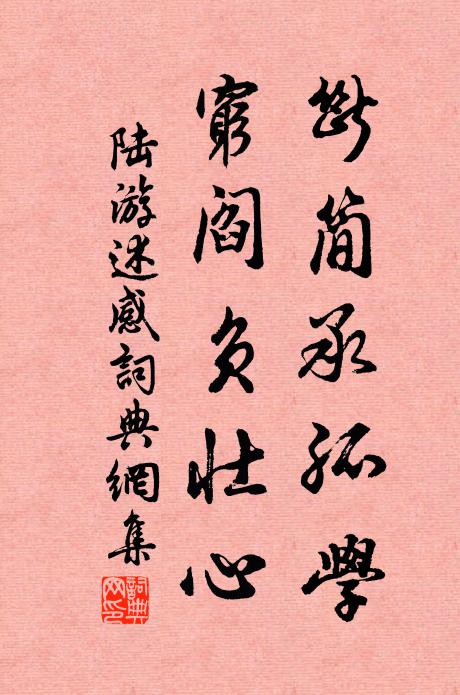 斷簡承孤學
窮閻負壯心
陆游述感詞典網集
詞典網印